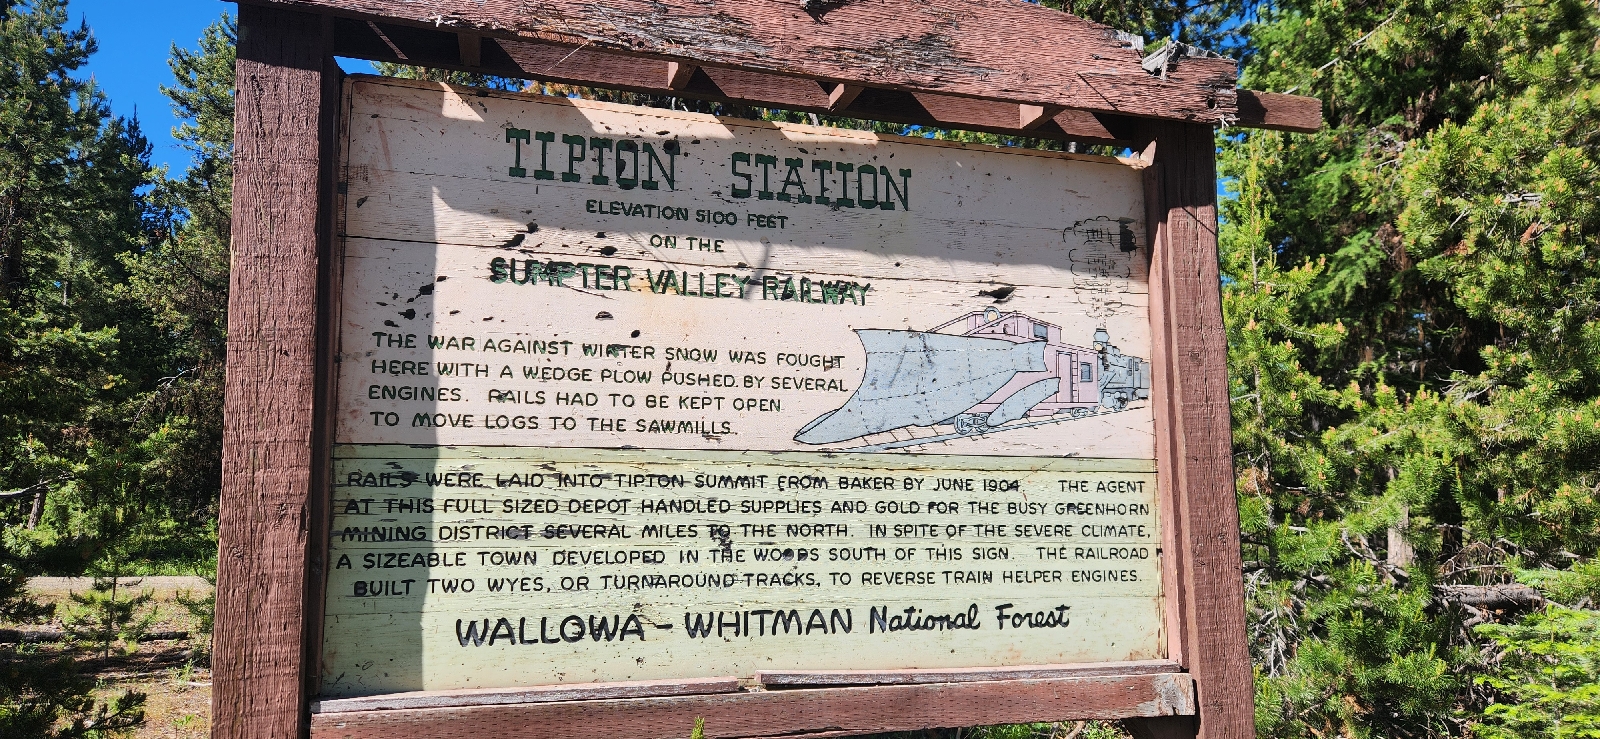 TIPTON STATION
ELEVATION 5100 FEET
ON THE
SUMPTER VALLEY RAILWAY
THE WAR AGAINST WINTER SNOW WAS FOUGHT
HERE WITH A WEDGE PLOW PUSHED BY SEVERAL
ENGINES. RAILS HAD TO BE KEPT OPEN
TO MOVE LOGS TO THE SAWMILLS.
RAILS WERE LAID INTO TIPTON SUMMIT FROM BAKER BY JUNE 1904 THE AGENT
AT THIS FULL SIZED DEPOT HANDLED SUPPLIES AND GOLD FOR THE BUSY GREENHORN
MINING DISTRICT SEVERAL MILES TO THE NORTH. IN SPITE OF THE SEVERE CLIMATE,
A SIZEABLE TOWN DEVELOPED IN THE WOODS SOUTH OF THIS SIGN. THE RAILROAD
BUILT TWO WYES, OR TURNAROUND TRACKS, TO REVERSE TRAIN HELPER ENGINES.
WALLOWA - WHITMAN National Forest